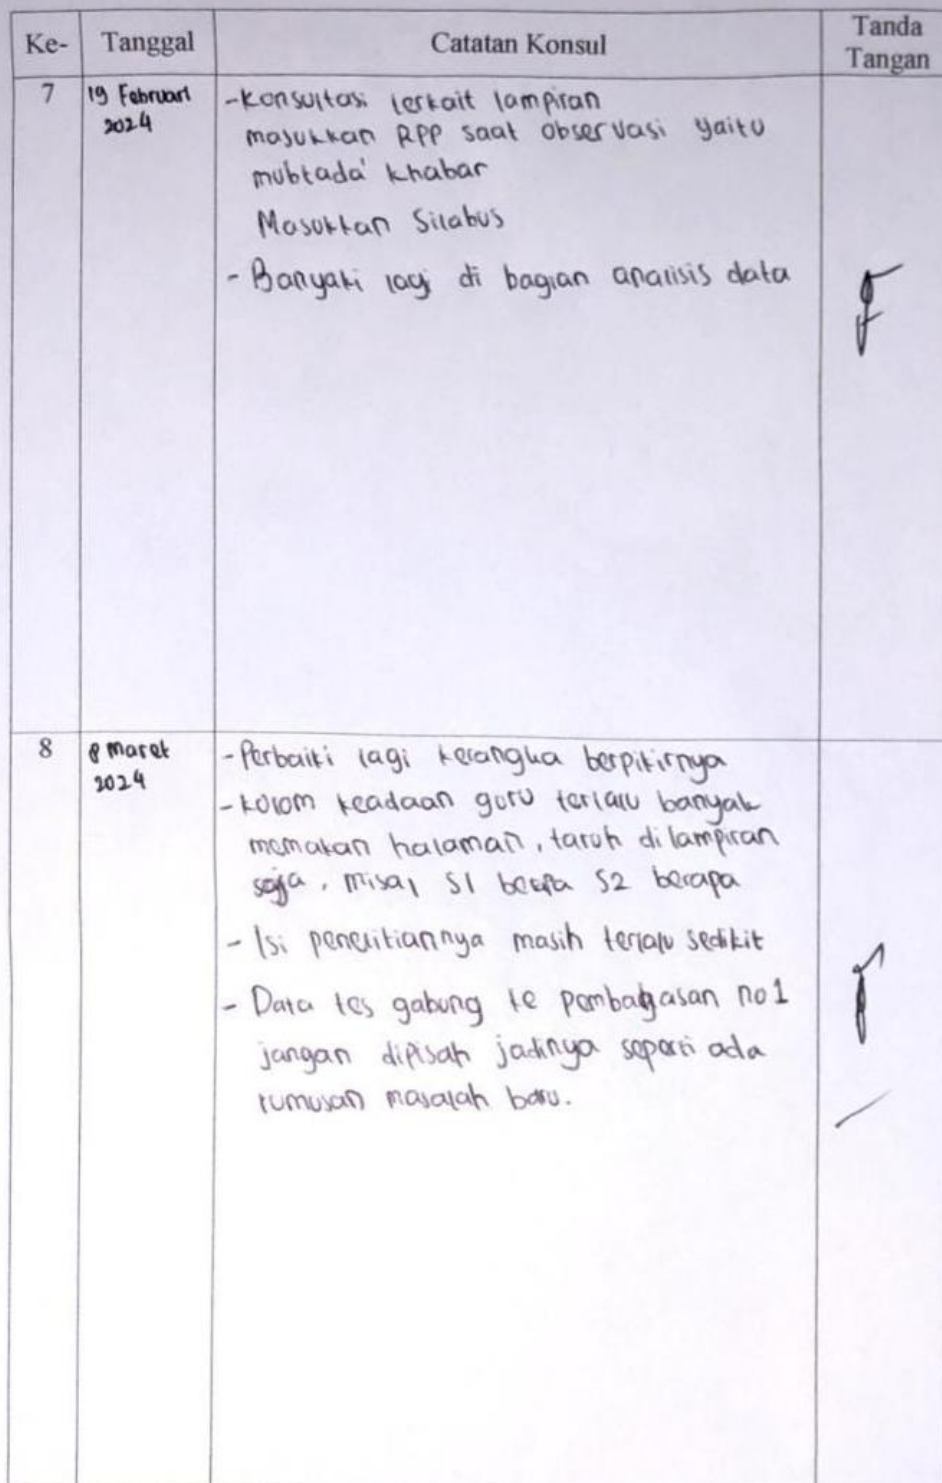 Ke- Tanggal Catatan Konsul Tanda Tangan
7 19 Februari 2024
-Konsultasi terkait lampiran
masukkan RPP saat observasi yaitu
mubtada' khabar
Masukkan Silabus
- Banyaki lagi di bagian analisis data
8 8 Maret 2024
- Perbaiki lagi kerangka berpikirnya
- kolom keadaan guru terlalu banyak
memakan halaman, taruh di lampiran
saja, misal S1 berapa S2 berapa
- Isi penelitiannya masih terlalu sedikit
- Data tes gabung ke pembahasan no 1
jangan dipisah jadinya seperti ada
rumusan masalah baru.